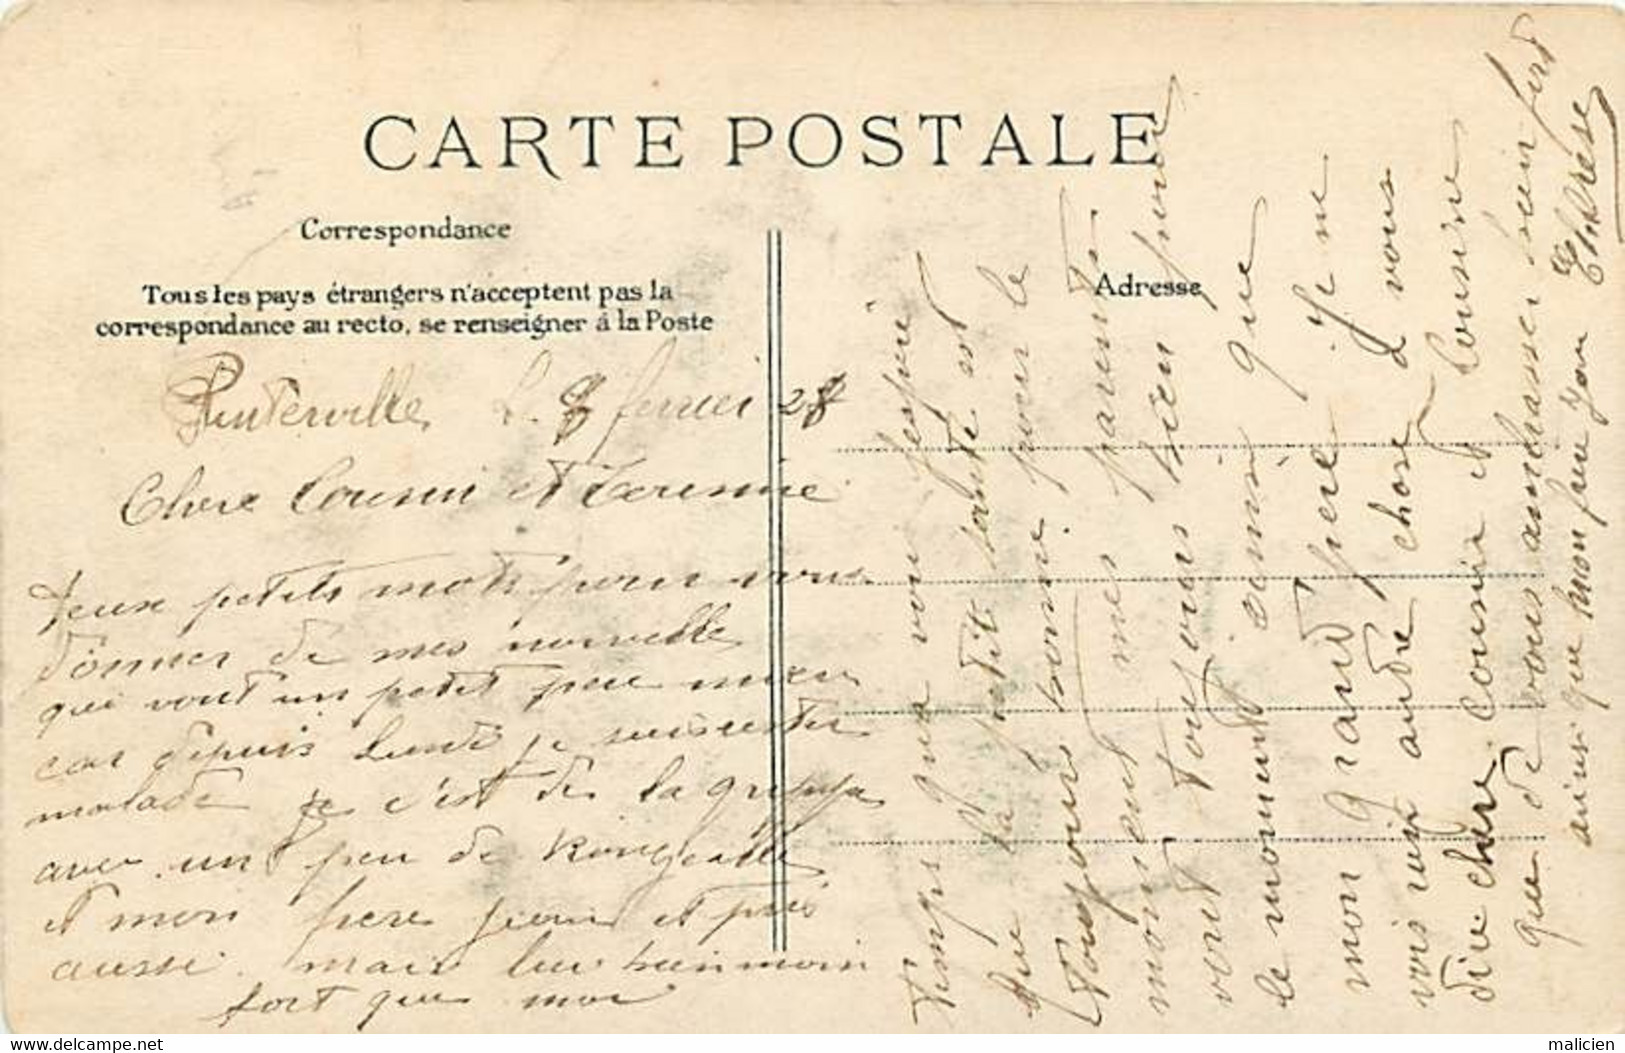 CARTE POSTALE
Correspondance
Tous les pays étrangers n'acceptent pas la
correspondance au recto, se renseigner à la Poste
Adresse
Pinterville L. 8 fevrier 28
Chere Cousin et
Deux petits mots pour vous
donner de mes nouvelle
que vont un petit peu mieu
car depuis Lundi je suis
malade je c'est de la grippe
avec un peu de Rougeolle
et mon frere et pris
aussi. mais lui bien moin
fort que moi
Temps qua vou jespaire
que la petit santé est
toujours bonne pour le
moment mes parents
vont toujours bien pour
le moment que
mon grand pere Je ne
vois rien autre chose a vous
dire chere cousin et Cousine
que de vous ambrasser bien fort
ainsi que mon frere Jean
Thérèse
delcampe.net
malicien